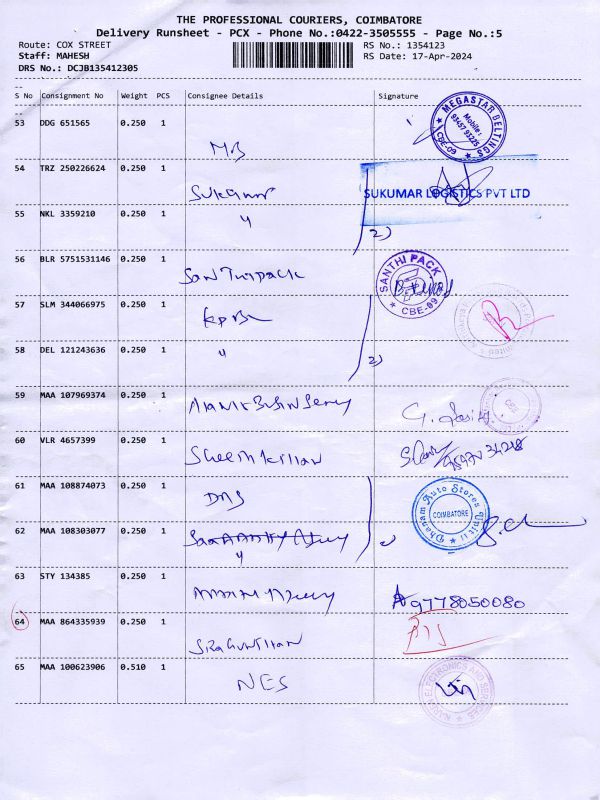 THE PROFESSIONAL COURIERS, COIMBATORE
Delivery Runsheet - PCX - Phone No.:0422-3505555 - Page No.:5
Route: COX STREET RS No.: 1354123
Staff: MAHESH RS Date: 17-Apr-2024
DRS No.: DCJB135412305
S No Consignment No Weight PCS Consignee Details Signature
53 DDG 651565 0.250 1
MEGASTAR BELTINGS
Mobile:
CBE-09
MB
54 TRZ 250226624 0.250 1
SUKUMAR LOGISTICS PVT LTD
55 NKL 3359210 0.250 1
"
2)
56 BLR 5751531146 0.250 1
SANTHI PACK
CBE-09
57 SLM 344066975 0.250 1
58 DEL 121243636 0.250 1
"
2)
59 MAA 107969374 0.250 1
60 VLR 4657399 0.250 1
61 MAA 108874073 0.250 1
DAS
Dhanam Auto Stores Unit II
COIMBATORE
62 MAA 108303077 0.250 1
"
63 STY 134385 0.250 1
9778050080
64 MAA 864335939 0.250 1
65 MAA 100623906 0.510 1
NES
ELECTRONICS AND SERVICES